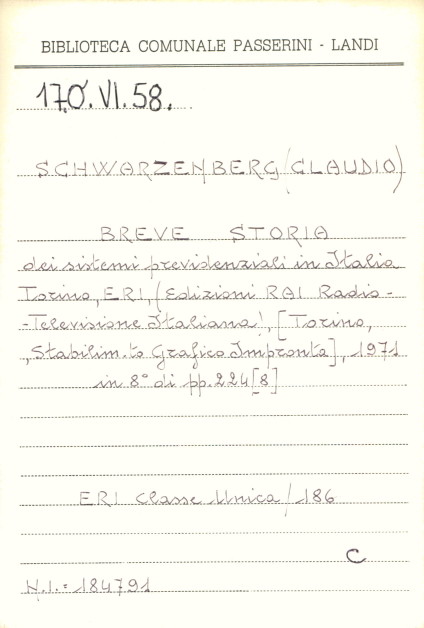 BIBLIOTECA COMUNALE PASSERINI - LANDI
170.VI.58.
SCHWARZENBERG (CLAUDIO)
BREVE STORIA
dei sistemi previdenziali in Italia
Torino, ERI, (Edizioni RAI Radio-
-Televisione Italiana), [Torino,
Stabilim.to Grafico Impronta], 1971
in 8° di pp. 224 [8]
ERI Classe Unica / 186
C
N.I. = 184791